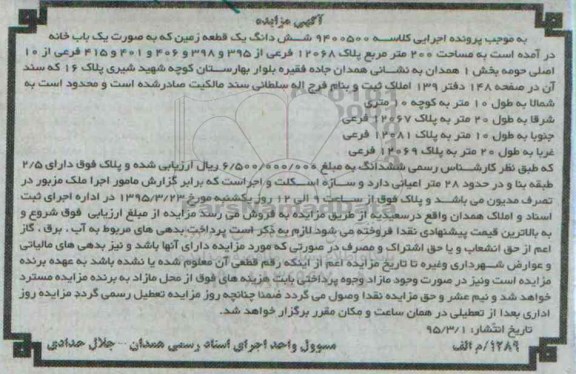 آگهی مزایده
به موجب پرونده اجرایی کلاسه ۹۴۰۰۵۰۰ شش دانگ یک قطعه زمین که به صورت یک باب خانه
در آمده است به مساحت ۲۰۰ متر مربع پلاک ۱۲۰۶۸ فرعی از ۳۹۵ و ۳۹۸ و ۴۰۶ و ۴۰۱ و ۴۱۵ فرعی از ۱۰
اصلی حومه بخش ۱ همدان به نشانی همدان جاده فقیره بلوار بهارستان کوچه شهید شیری پلاک ۱۶ که سند
آن در صفحه ۱۴۸ دفتر ۱۳۹ املاک ثبت و بنام فرج اله سلطانی سند مالکیت صادرشده است و محدود است به
شمالا به طول ۱۰ متر به کوچه ۱۰ متری
شرقا به طول ۲۰ متر به پلاک ۱۲۰۶۷ فرعی
جنوبا به طول ۱۰ متر به پلاک ۱۲۰۸۱ فرعی
غربا به طول ۲۰ متر به پلاک ۱۲۰۶۹ فرعی
که طبق نظر کارشناس رسمی ششدانگ به مبلغ ۶/۵۰۰/۰۰۰/۰۰۰ ریال ارزیابی شده و پلاک فوق دارای ۲/۵
طبقه بنا و در حدود ۲۸ متر اعیانی دارد و سازه اسکلت و اجراست که برابر گزارش مامور اجرا ملک مزبور در
تصرف مدیون می باشد و پلاک فوق از ساعت ۹ الی ۱۲ روز یکشنبه مورخ ۱۳۹۵/۳/۲۳ در اداره اجرای ثبت
اسناد و املاک همدان واقع درسعیدیه از طریق مزایده به فروش می رسد مزایده از مبلغ ارزیابی فوق شروع و
به بالاترین قیمت پیشنهادی نقدا فروخته می شود.لازم به ذکر است پرداخت بدهی های مربوط به آب، برق، گاز
اعم از حق انشعاب و یا حق اشتراک و مصرف در صورتی که مورد مزایده دارای آنها باشد و نیز بدهی های مالیاتی
و عوارض شهرداری وغیره تا تاریخ مزایده اعم از اینکه رقم قطعی آن معلوم شده یا نشده باشد به عهده برنده
مزایده است ونیز در صورت وجود مازاد وجوه پرداختی بابت هزینه های فوق از محل مازاد به برنده مزایده مسترد
خواهد شد و نیم عشر و حق مزایده نقدا وصول می گردد ضمنا چنانچه روز مزایده تعطیل رسمی گردد مزایده روز
اداری بعداز تعطیلی در همان ساعت و مکان مقرر برگزار خواهد شد.
تاریخ انتشار: ۹۵/۳/۱
۱۲۸۹/م الف مسوول واحد اجرای اسناد رسمی همدان - جلال حدادی